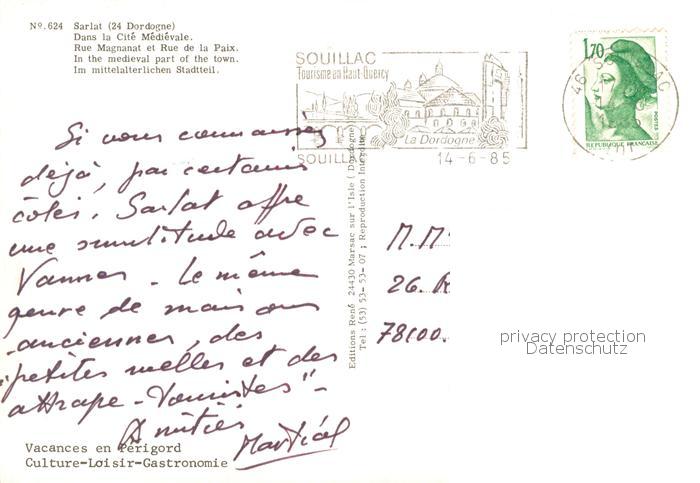 Nº.624 Sarlat (24 Dordogne)
Dans la Cité Médiévale.
Rue Magnanat et Rue de la Paix.
In the medieval part of the town.
Im mittelalterlichen Stadtteil.
SOUILLAC
Tourisme en Haut-Quercy
La Dordogne
SOUILLAC
14-6-85
46 SOUILLAC
1,70
POSTES
REPUBLIQUE FRANÇAISE
Si vous connaissez
déjà, par certains
côtés, Sarlat offre
une similitude avec
Vannes - le même
genre de maisons
anciennes, des
"petites ruelles et des
attrape-touristes" -
Amitiés
Martial
Editions René 24430 Marsac sur l'Isle (Dordogne)
Tel: (53) 53-53-07 ; Reproduction Interdite
M. M
26. R
78100.
privacy protection
Datenschutz
Vacances en Périgord
Culture-Loisir-Gastronomie